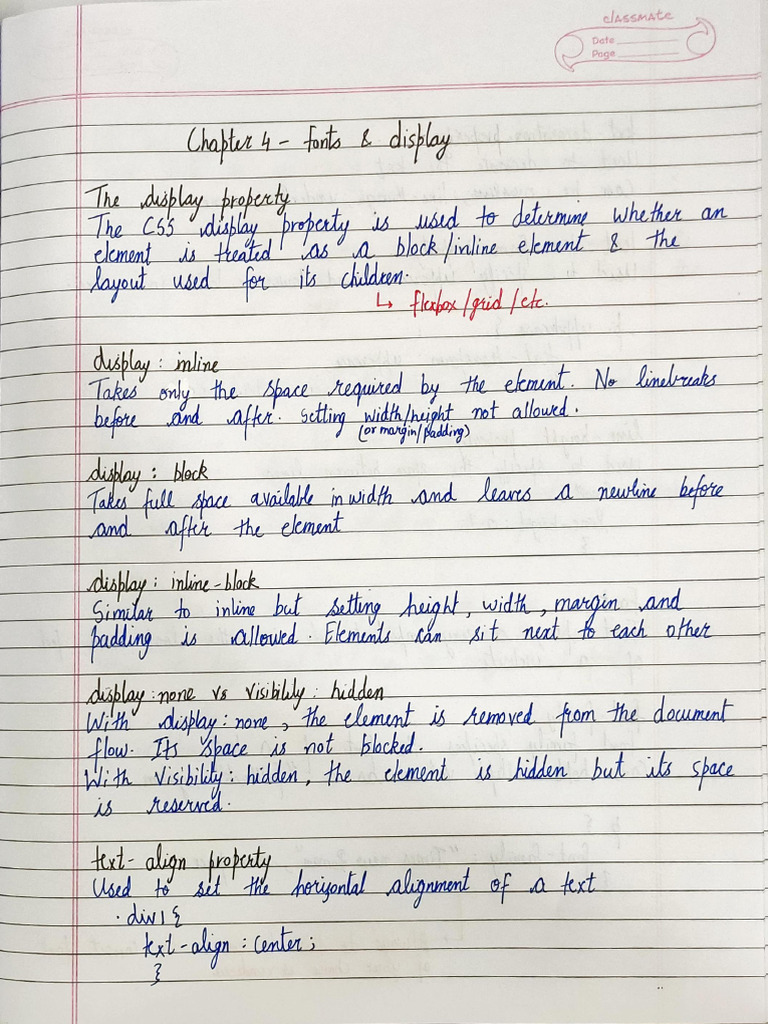 classmate
Date
Page
Chapter 4 - fonts & display
The display property
The CSS display property is used to determine whether an
element is treated as a block/inline element & the
layout used for its children.
↳ flexbox/grid/etc.
display: inline
Takes only the space required by the element. No linebreaks
before and after. Setting width/height not allowed.
(or margin/padding)
display: block
Takes full space available in width and leaves a newline before
and after the element
display: inline-block
Similar to inline but setting height, width, margin and
padding is allowed. Elements can sit next to each other
display: none vs visibility: hidden
With display: none, the element is removed from the document
flow. Its space is not blocked.
With visibility: hidden, the element is hidden but its space
is reserved.
text-align property
Used to set the horizontal alignment of a text
.div1{
text-align: center;
}